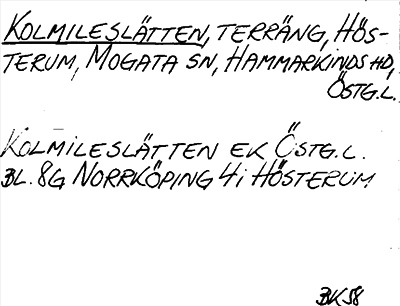 KOLMILESLÄTTEN, TERRÄNG, HÖS-
TERUM, MOGATA SN, HAMMARKINDS HD,
ÖSTG.L.
KOLMILESLÄTTEN EK ÖSTG.L.
BL. 8G NORRKÖPING 4i HÖSTERUM
BK58